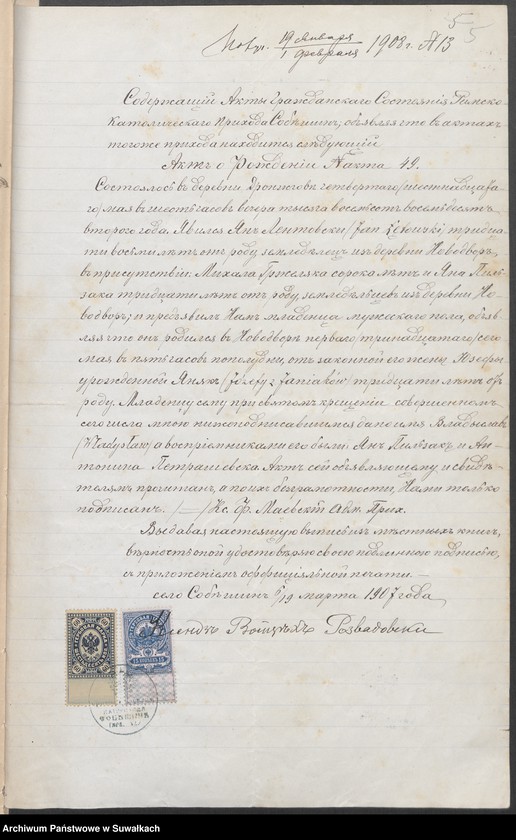 5
5
19 января
1 февраля 1908 г. № 13
Содержащій Акты Гражданскаго Состоянія Римско-
Католическаго Прихода Собѣшинъ, объявляя что въ актахъ
того же прихода находится слѣдующій
Актъ о Рожденіи № акта 49.
Состоялось въ деревни четвертаго /шестнадцата-
го/ мая въ шесть часовъ вечера тысяча восемьсотъ восемьдесятъ
втораго года. Явился Янъ Лентовски /Jan Łętowski/ тридца-
ти восьми лѣтъ отъ роду, земледѣлецъ изъ деревни Новодворъ,
въ присутствіи: Михала Гжеляка сорока лѣтъ и Яна Пиль-
зака тридцати лѣтъ отъ роду, земледѣльцевъ изъ деревни Но-
водворъ; и предъявилъ Намъ младенца мужескаго пола, объяв-
ляя что онъ родился въ Новодворѣ перваго /тринадцатаго/ сего
мая въ пять часовъ пополудни, отъ законной его жены Юзефы
урожденной Янякъ /Józefy z Janiaków/ тридцати лѣтъ отъ
роду. Младенцу сему при святомъ крещеніи совершенномъ
сего числа мною нижеподписавшимся дано имя Владыславъ
/Władysław/ а воспріемниками его были: Янъ Пильзакъ и Ан-
тонина Петрашевска. Актъ сей объявляющему и свидѣ-
телямъ прочитанъ, а по ихъ безграмотности, Нами только
подписанъ. /—/ Кс. Ф. Маевскій Адм. Прих.
Выдавая настоящую выпись изъ мѣстныхъ книгъ,
вѣрность оной удостовѣряю своею подлинною подписью,
съ приложеніемъ оффиціальной печати. —
село Собѣшинъ 6/19 марта 1907 года
Ксендзъ Войцѣхъ Розвадовски
60 60
15 КОПѢЕКЪ 15
Archiwum Państwowe w Suwałkach